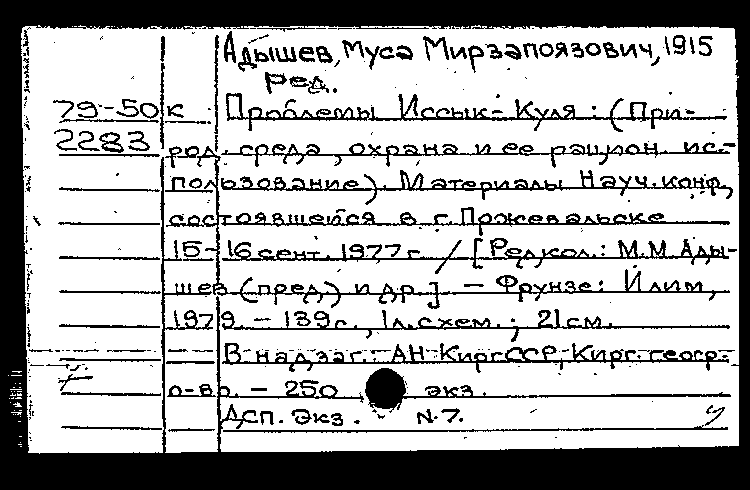 Адышев, Муса Мирзапоязович, 1915
ред.
79-50к Проблемы Иссык-Куля : (При-
2283 род. среда, охрана и ее рацион. ис-
пользование). Материалы Науч. конф.,
состоявшейся в г. Пржевальске
15-16 сент. 1977 г. / [Редкол.: М.М Ады-
шев (пред.) и др.]. - Фрунзе: Илим,
1979. - 139 с., 1 л. схем. ; 21 см.
В надзаг.: АН КиргССР, Кирг. геогр.
о-во. - 250 экз.
Дсп. экз. N.7.